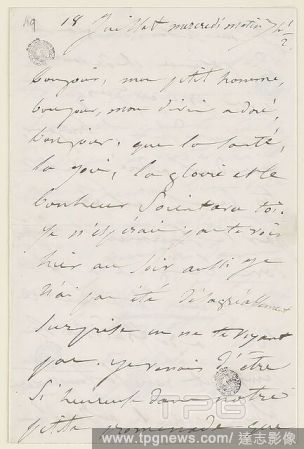 119
18 Juillet mercredi matin 7h ½
Bonjour, mon petit homme,
bonjour, mon divin adoré,
bonjour, que la santé,
la joie, la gloire et le
bonheur soient avec toi.
Je n'espérais pas te voir
hier au soir aussi je
n'ai pas été désagréablement
surprise en ne te voyant
pas. Je venais d'être
si heureuse dans notre
petite promenade que
TPG
www.tpgnews.com / 達志影像